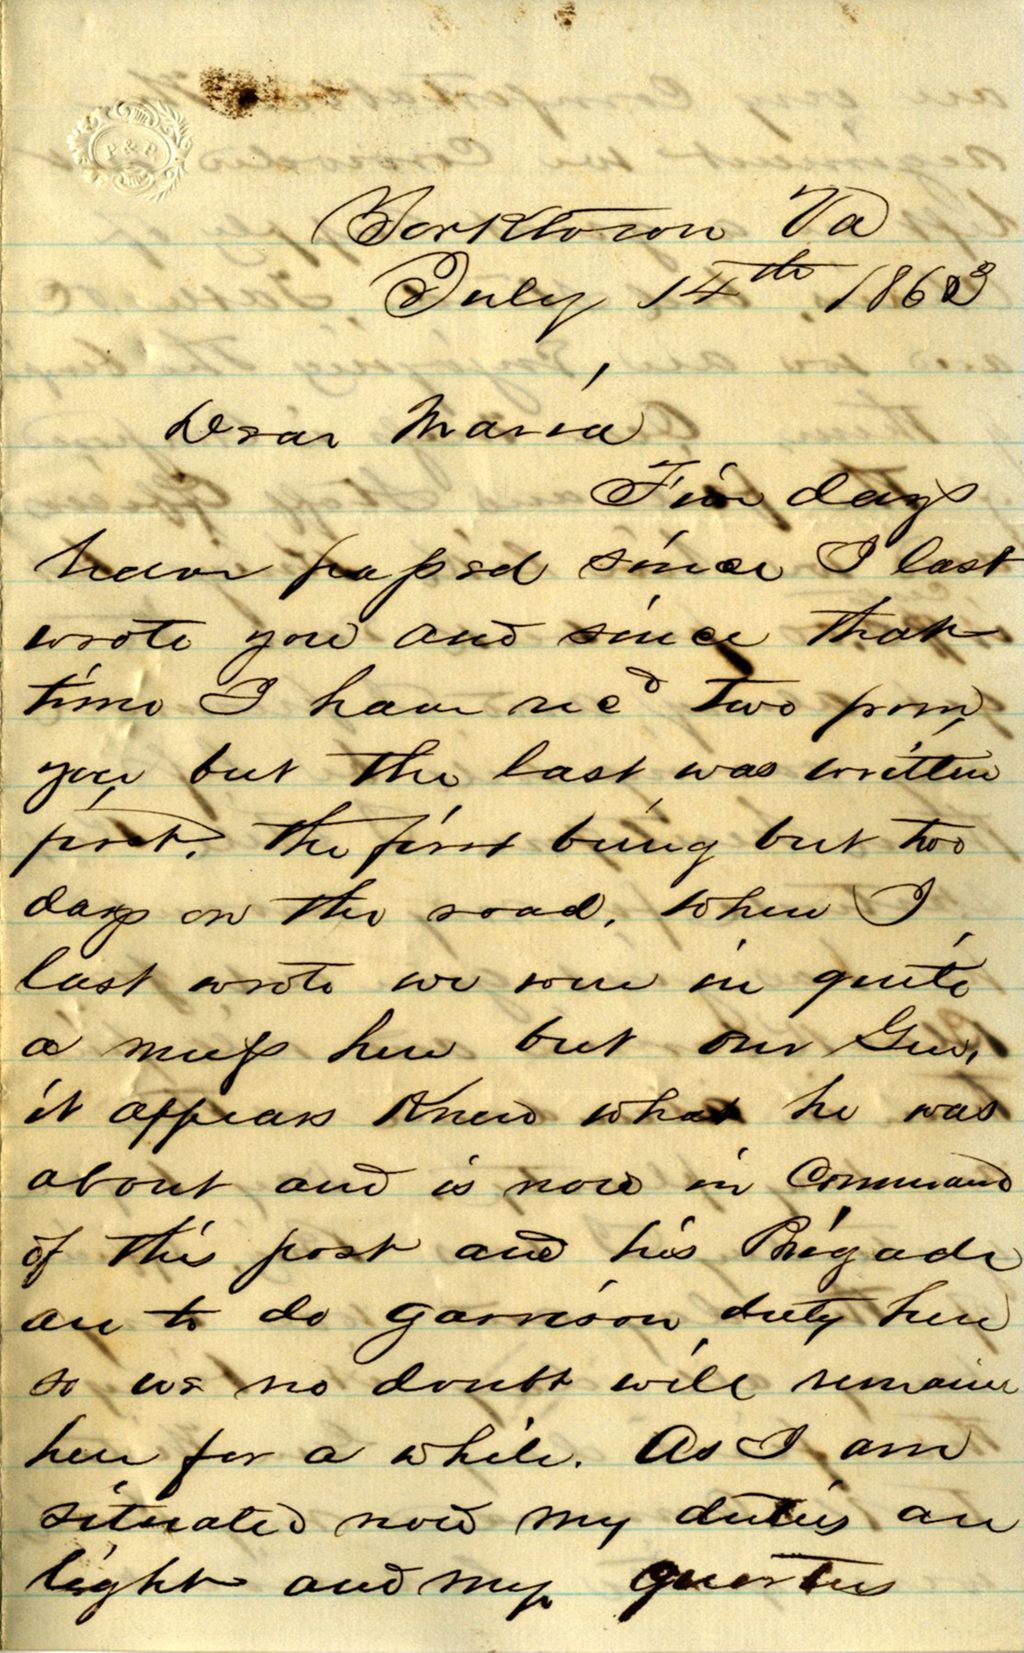 P & P
Yorktown Va
July 14th 1863
Dear Maria
Five days
have passed since I last
wrote you and since that
time I have recd two from
you, but the last was written
first. the first being but two
days on the road. When I
last wrote we were in quite
a muss here but our Gen.
it appears knew what he was
about and is now in command
of this post and his Brigade
are to do garrison duty here
so we no doubt will remain
here for a while. As I am
situated now my duties are
light and my quarters